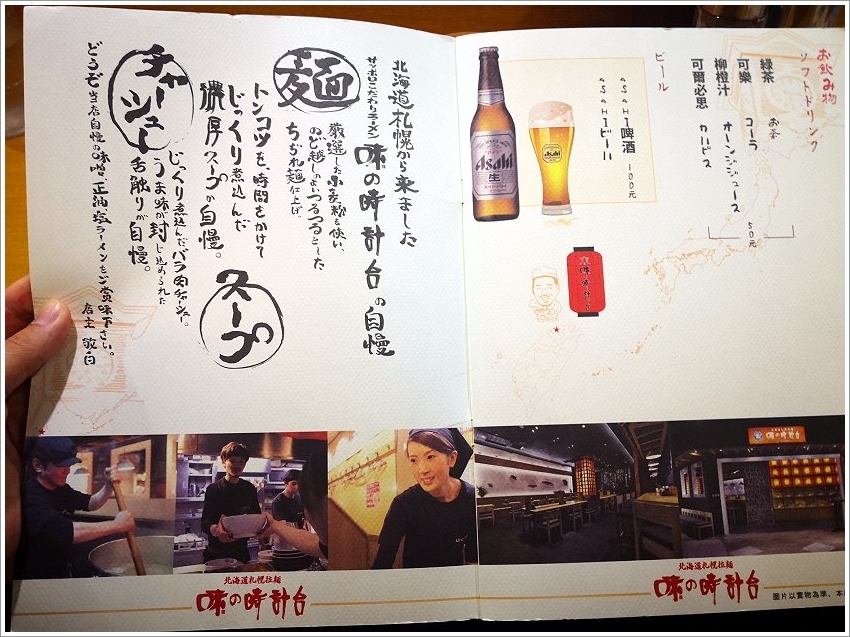 お飲み物
ソフトドリンク
緑茶 お茶
可樂 コーラ
柳橙汁 オーンジジュース
可爾必思 カルピス
50元
ビール
ASAHI啤酒 100元
ASAHIビール
Asahi
生
北海道札幌から来ました
味の時計台の自慢
サッポロこだわりラーメン
麺
厳選した小麦粉を使い、
のど越しのよいつるつるとした
ちぢれ麺仕上げ。
トンコツを、時間をかけて
じっくり煮込んだ
濃厚スープが自慢。
スープ
チャーシュー
じっくり煮込んだバラ肉チャーシュー。
うま味が封じ込められた
舌触りが自慢。
どうぞ当店自慢の味噌、正油、塩ラーメンをご賞味下さい。
店主 敬白
味の時計台
北海道札幌拉麺
味の時計台
北海道札幌拉麺
味の時計台
圖片以實物為準、本